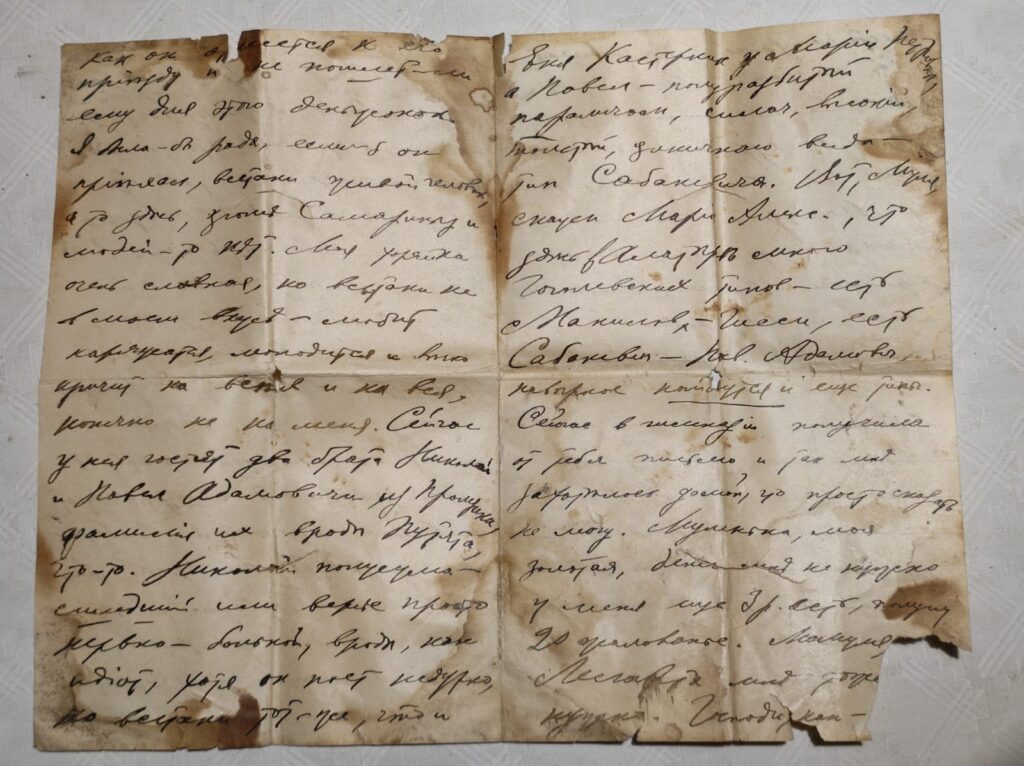 как он к его
приезду и не пошлет-ли
ему для этого деньжонок.
Я была-бъ рада, если-б он
пріѣхал, всетаки живой человек,
а то здѣсь, кроме и
людей-то нѣт. Моя хозяйка
очень славная, но всетаки не
в моем вкусѣ – любит
наряжатся, молодится и
кричит на всех и на вся,
конечно не на меня. Сейчас
у нея гостят два брата Николай
и Павел Адамовичи из
фамилія их вроде Путята,
что-то. Николай полусума-
сшедшій или вернее просто
нервно-больной, вроде, как
идіот, хотя он поет недурно,
но всетаки тот-же, что и
у Маріи Петровны,
а Павел – полуразбитый
параличом, силач, высокій,
толстый, видa –
тип Собакевича. Вот, Муля,
скажи Маріи Алекс., что
здѣсь в Алатырѣ много
Гоголевских типов – есть
Манилов, есть
Собакевич – Пав. Адамович,
навѣрное найдутся и еще типы.
Сейчас в гимназіи получила
от тебя письмо и так мнѣ
захотѣлось домой, что просто сказать
не могу. Мулечка, моя
золотая, денег мнѣ не нужно
у меня еще 3 р. есть, получу
20 жалованье. Мамуля
мнѣ тоже
нужна. Господи, как-